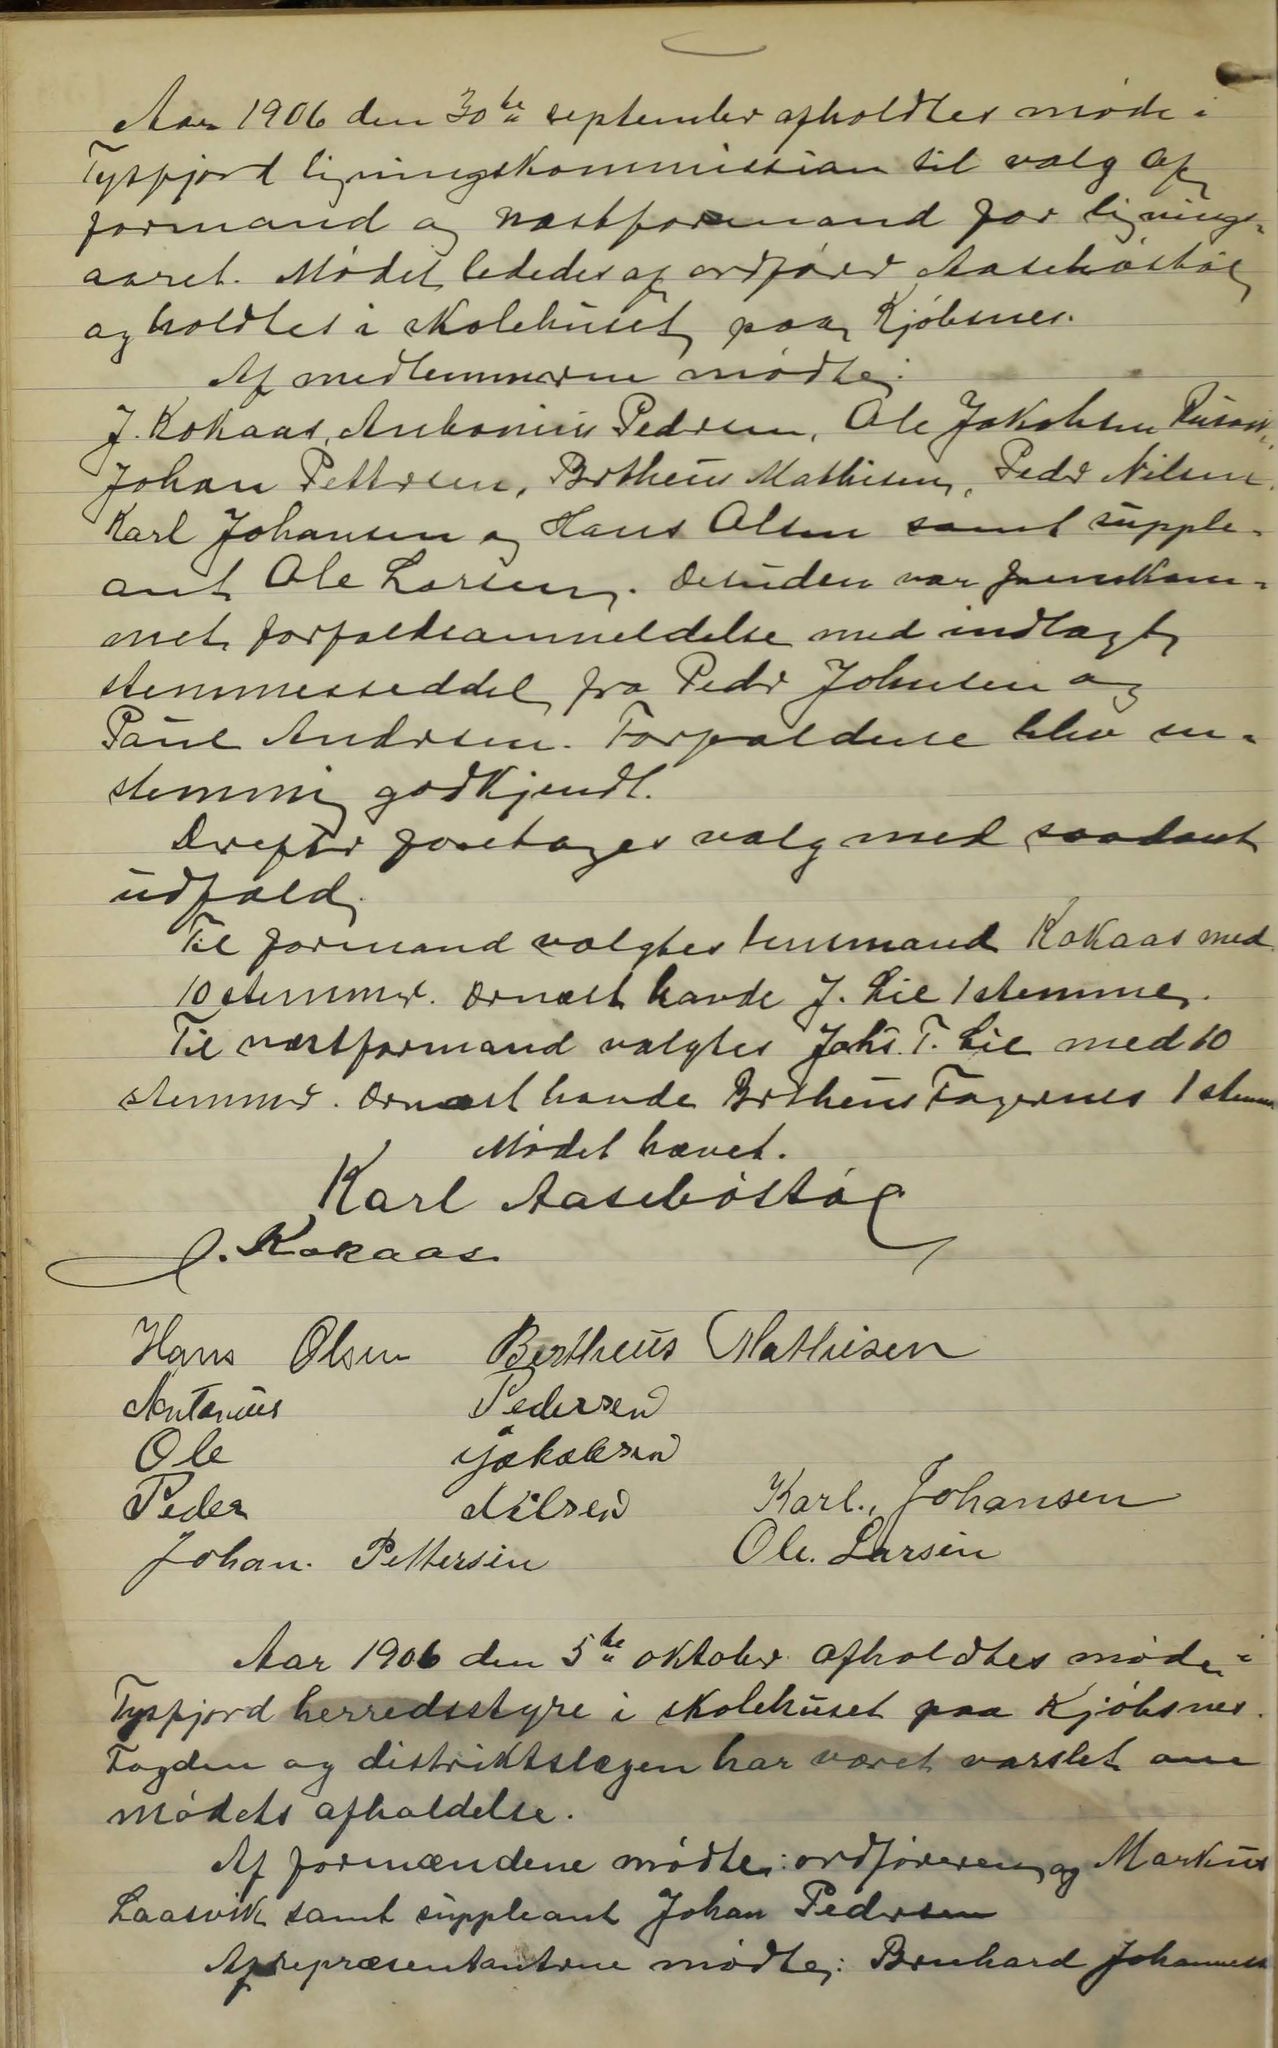 Aar 1906 den 30te september afholdtes møde i
Tysfjord ligningskommission til valg af
formand og næstformand for lignings-
aaret. Mødet lededes af ordfører Aasebøstøl
og holdtes i skolehuset paa Kjøbsnes.
Af medlemmerne mødte:
J. Kokaas, Antonius Pedersen, Ole Jakobsen
Johan Pettersen, Bertheus Mathisen, Peder Nilsen.
Karl Johansen og Hans Olsen samt supple-
ant Ole Larsen. Desuden var fremkom-
met forfaldsanmeldelse med indlagt
stemmesseddel fra Peder Johnsen og
Paul Andersen. Forfaldene blev en-
stemmig godkjendt.
Derefter foretages valg med saadant
udfald.
Til formand valgtes lensmand Kokaas med
10 stemmer. Dernæst havde J. Lie 1 stemme.
Til næstformand valgtes Johs. T. Lie med 10
stemmer. Dernæst havde Bertheus Fagernes 1 stemme
Mødet hævet.
Karl Aasebøstøl
J. Kokaas
Hans Olsen Bertheus Mathisen
Antonius Pedersen
Ole Jakobsen
Peder Nilsen Karl. Johansen
Johan. Pettersen Ole. Larsen
Aar 1906 den 5te oktober afholdtes møde i
Tysfjord herredsstyre i skolehuset paa Kjøbsnes.
Fogden og distriktslægen har været varslet om
mødets afholdelse.
Af formændene mødte: ordføreren og Markus
Laasvik samt suppleant Johan Pedersen
Af repræsentanterne mødte: Bernhard Johannesen